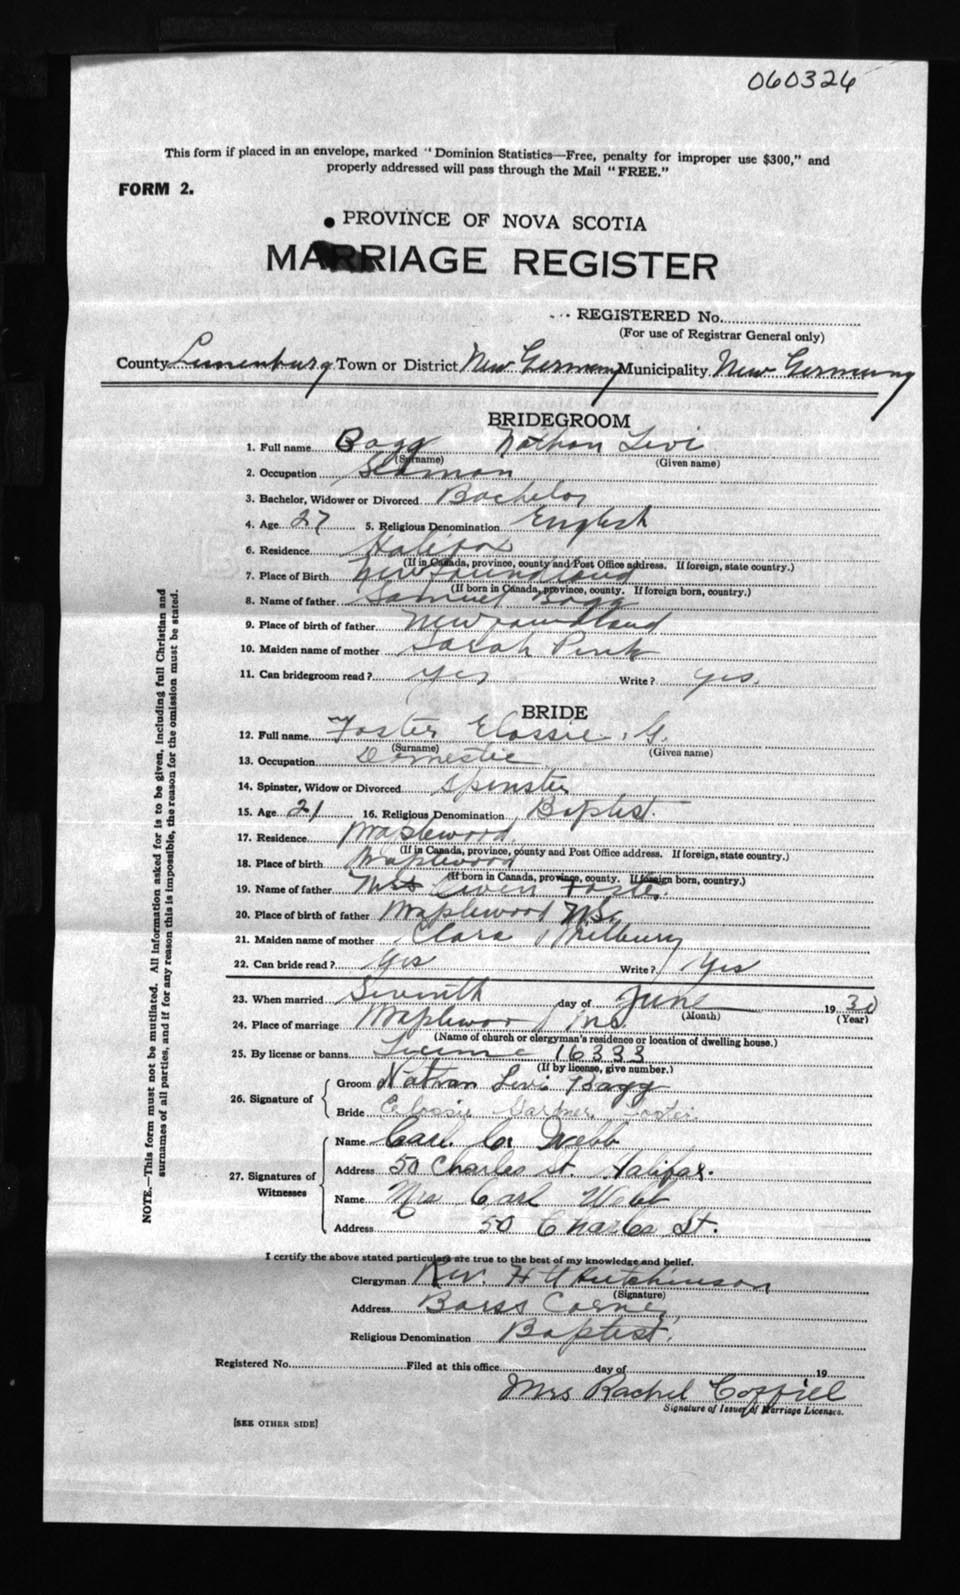 060326
This form if placed in an envelope, marked "Dominion Statistics—Free, penalty for improper use $300," and
properly addressed will pass through the Mail "FREE."
FORM 2.
PROVINCE OF NOVA SCOTIA
MARRIAGE REGISTER
REGISTERED No.
(For use of Registrar General only)
County Lunenburg Town or District New Germany Municipality New Germany
BRIDEGROOM
1. Full name Bagg Nathan Levi
(Surname) (Given name)
2. Occupation Seaman
3. Bachelor, Widower or Divorced Bachelor
4. Age 27 5. Religious Denomination English
6. Residence Halifax
(If in Canada, province, county and Post Office address. If foreign, state country.)
7. Place of Birth Newfoundland
(If born in Canada, province, county. If foreign born, country.)
8. Name of father Samuel Bagg
9. Place of birth of father Newfoundland
10. Maiden name of mother Sarah Pink
11. Can bridegroom read? yes Write? yes.
BRIDE
12. Full name Foster Elossie. G.
(Surname) (Given name)
13. Occupation Domestic
14. Spinster, Widow or Divorced Spinster
15. Age 21 16. Religious Denomination Baptist.
17. Residence Maplewood
(If in Canada, province, county and Post Office address. If foreign, state country.)
18. Place of birth Maplewood
(If born in Canada, province, county. If foreign born, country.)
19. Name of father Owen Foster
20. Place of birth of father Maplewood N.S.
21. Maiden name of mother Clara Milbury
22. Can bride read? Yes Write? Yes
23. When married Seventh day of June 1930
(Month) (Year)
24. Place of marriage Maplewood N.S.
(Name of church or clergyman's residence or location of dwelling house.)
25. By license or banns License 16333
(If by license, give number.)
26. Signature of
Groom Nathan Levi Bagg
Bride Elossie Gardner Foster
27. Signatures of Witnesses
Name Carl C. Webb
Address 50 Charles St. Halifax.
Name Mrs Carl Webb
Address 50 Charles St.
I certify the above stated particulars are true to the best of my knowledge and belief.
Clergyman Rev. H Hutchinson
(Signature)
Address Barss Corner,
Religious Denomination Baptist.
Registered No. Filed at this office day of 19
Mrs Rachel
Signature of Issuer of Marriage Licenses.
[SEE OTHER SIDE]
NOTE.—This form must not be mutilated. All information asked for is to be given, including full Christian and
surnames of all parties, and if for any reason this is impossible, the reason for the omission must be stated.